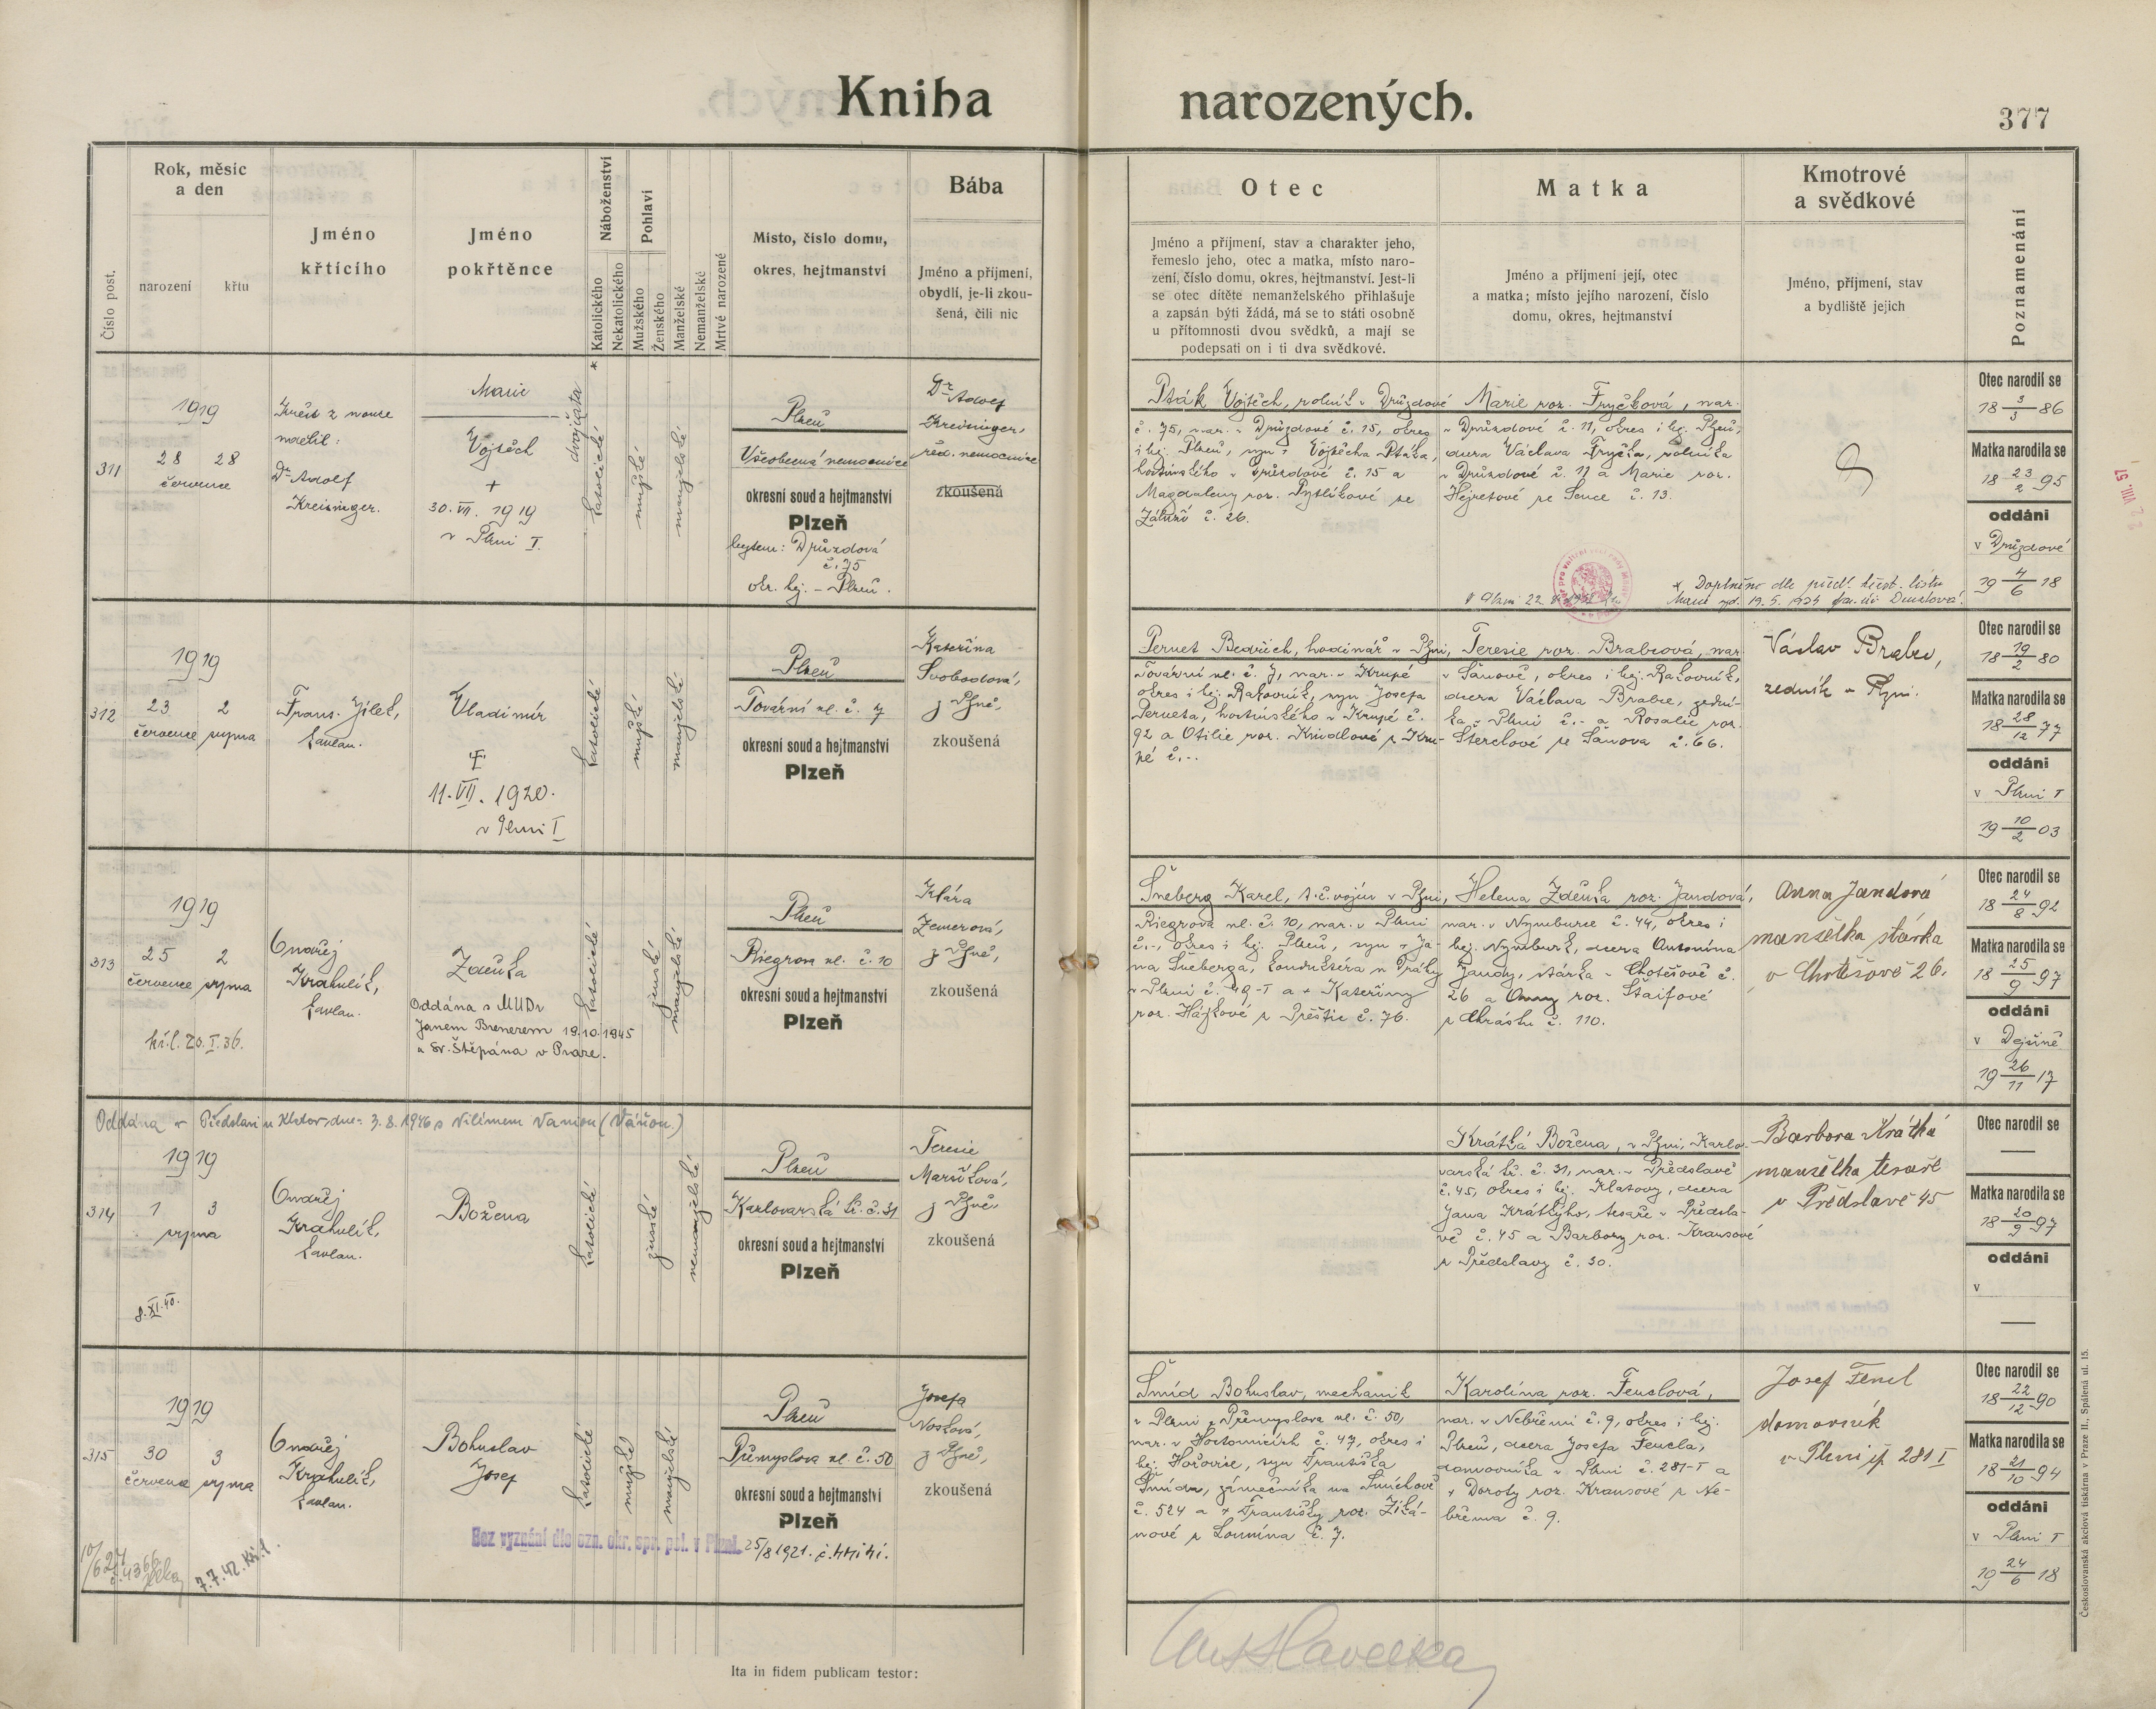 Kniha narozených.
377
Číslo post.
Rok, měsíc
a den
narození
křtu
Jméno
křtícího
Jméno
pokřtěnce
Náboženství
Katolického
Nekatolického
Pohlaví
Mužského
Ženského
Manželské
Nemanželské
Mrtvě narozené
Místo, číslo domu,
okres, hejtmanství
Bába
Jméno a příjmení,
obydlí, je-li zkou-
šená, čili nic
Otec
Jméno a příjmení, stav a charakter jeho,
řemeslo jeho, otec a matka, místo naro-
zení, číslo domu, okres, hejtmanství. Jest-li
se otec dítěte nemanželského přihlašuje
a zapsán býti žádá, má se to státi osobně
u přítomnosti dvou svědků, a mají se
podepsati on i ti dva svědkové.
Matka
Jméno a příjmení její, otec
a matka; místo jejího narození, číslo
domu, okres, hejtmanství
Kmotrové
a svědkové
Jméno, příjmení, stav
a bydliště jejich
Poznamenání
311
1919
28 28
července
Křest z nouze
Dr Adolf
Kreisinger.
Marie
Vojtěch
+
30. VII. 1919
v Plzni I.
dvojčata
katolické
mužské
manželské
Plzeň
Všeobecná nemocnice
okresní soud a hejtmanství
Plzeň
bytem: Druzdová
č. 75
okr. hej. - Plzeň.
Dr Adolf
Kreisinger,
řed. nemocnice
zkoušená
Pták Vojtěch, rolník v Druzdové
č. 75, nar. v Druzdové č. 15, okres
i hej. Plzeň, syn + Vojtěcha Ptáka,
hostinského v Druzdové č. 15 a
Magdaleny roz. Pytlíkové ze
Záluží č. 26.
Marie roz. Fryčková, nar.
v Druzdové č. 11, okres i hej. Plzeň,
dcera Václava Fryčka, rolníka
v Druzdové č. 11 a Marie roz.
Hejretové ze Sence č. 13.
x Doplněno dle předl. křest. listu
Otec narodil se
18 3/3 86
Matka narodila se
18 23/2 95
oddáni
v Druzdové
19 4/6 18
312
1919
23 2
července srpna
Frant. Jílek,
kaplan.
Vladimír
+
11. VII. 1920.
v Plzni I
katolické
mužské
manželské
Plzeň
Tovární ul. č. 7
okresní soud a hejtmanství
Plzeň
Kateřina
Svobodová,
z Plzně,
zkoušená
Pernet Bedřich, hodinář v Plzni,
Tovární ul. č. 7, nar. v Krupé
okres i hej. Rakovník, syn Josefa
Perneta, hostinského v Krupé č.
92 a Otilie roz. Knidlové z Kru-
pé č. -.
Teresie roz. Brabcová, nar.
v Šanově, okres i hej. Rakovník,
dcera Václava Brabce, zední-
ka v Plzni č. - a Rosalie roz.
Šterclové ze Šanova č. 66.
Václav Brabec,
zedník v Plzni.
Otec narodil se
18 19/2 80
Matka narodila se
18 28/12 77
oddáni
v Plzni I
19 10/2 03
313
1919
25 2
července srpna
kř. l. 20. I. 36.
Ondřej
Krahulík,
kaplan.
Zdeňka
Oddána s MUDr
Janem Brenerem 19.10.1945
u sv. Štěpána v Praze.
katolické
ženské
manželské
Plzeň
Riegrova ul. č. 10
okresní soud a hejtmanství
Plzeň
Klára
Zemerová,
z Plzně,
zkoušená
Šneberg Karel, t. č. vojín v Plzni,
Riegrova ul. č. 10, nar. v Plzni
č. -, okres i hej. Plzeň, syn + Ja-
na Šneberga, konduktéra n dráhy
v Plzni č. 49-I a + Kateřiny
roz. Hájkové z Přeštic č. 76.
Helena Zdeňka roz. Jandová,
nar. v Nymburce č. 44, okres i
hej. Nymburk, dcera Antonína
Jandy, stárka v Chotěšově č.
26 a Anny roz. Štaifové
z Chrástu č. 110.
Anna Jandová
manželka stárka
v Chotěšově 26.
Otec narodil se
18 24/8 92
Matka narodila se
18 25/9 97
oddáni
v Dejšině
19 26/11 17
Oddána v Předslavi u Klatov dne 3. 8. 1946 s Vilímem Vaniou (Váňou)
314
1919
1 3
srpna
8. XI. 40.
Ondřej
Krahulík,
kaplan.
Božena
katolické
ženské
nemanželské
Plzeň
Karlovarská tř. č. 31
okresní soud a hejtmanství
Plzeň
Teresie
Maršíková,
z Plzně,
zkoušená
Krátká Božena, v Plzni, Karlo-
varská tř. č. 31, nar. v Předslavě
č. 45, okres i hej. Klatovy, dcera
Jana Krátkého, tesaře v Předsla-
vě č. 45 a Barbory roz. Krausové
z Předslavy č. 30.
Barbora Krátká
manželka tesaře
v Předslavě 45
Otec narodil se
—
Matka narodila se
18 20/9 97
oddáni
v
—
315
1919
30 3
července srpna
7. 7. 42. kř. l.
Ondřej
Krahulík,
kaplan.
Bohuslav
Josef
katolické
mužské
manželské
Plzeň
Přemyslova ul. č. 50
okresní soud a hejtmanství
Plzeň
Bez vyznání dle ozn. okr. spr. pol. v Plzni. 25/8 1921.
Josefa
Nosková,
z Plzně,
zkoušená
Šmíd Bohuslav, mechanik
v Plzni, Přemyslova ul. č. 50,
nar. v Hostomicích č. 47, okres i
hej. Hořovice, syn Františka
Šmída, zámečníka na Smíchově
č. 524 a + Františky roz. Ziká-
nové z Lounína č. 7.
Karolína roz. Fenclová,
nar. v Nebřemi č. 9, okres i hej.
Plzeň, dcera Josefa Fencla,
domovníka v Plzni č. 281-I a
+ Doroty roz. Krausové z Ne-
břema č. 9.
Josef Fencl
domovník
v Plzni čp 281 I
Otec narodil se
18 22/12 90
Matka narodila se
18 21/10 94
oddáni
v Plzni I
19 24/6 18
Ita in fidem publicam testor:
Československá akciová tiskárna v Praze II., Spálená ul. 15.